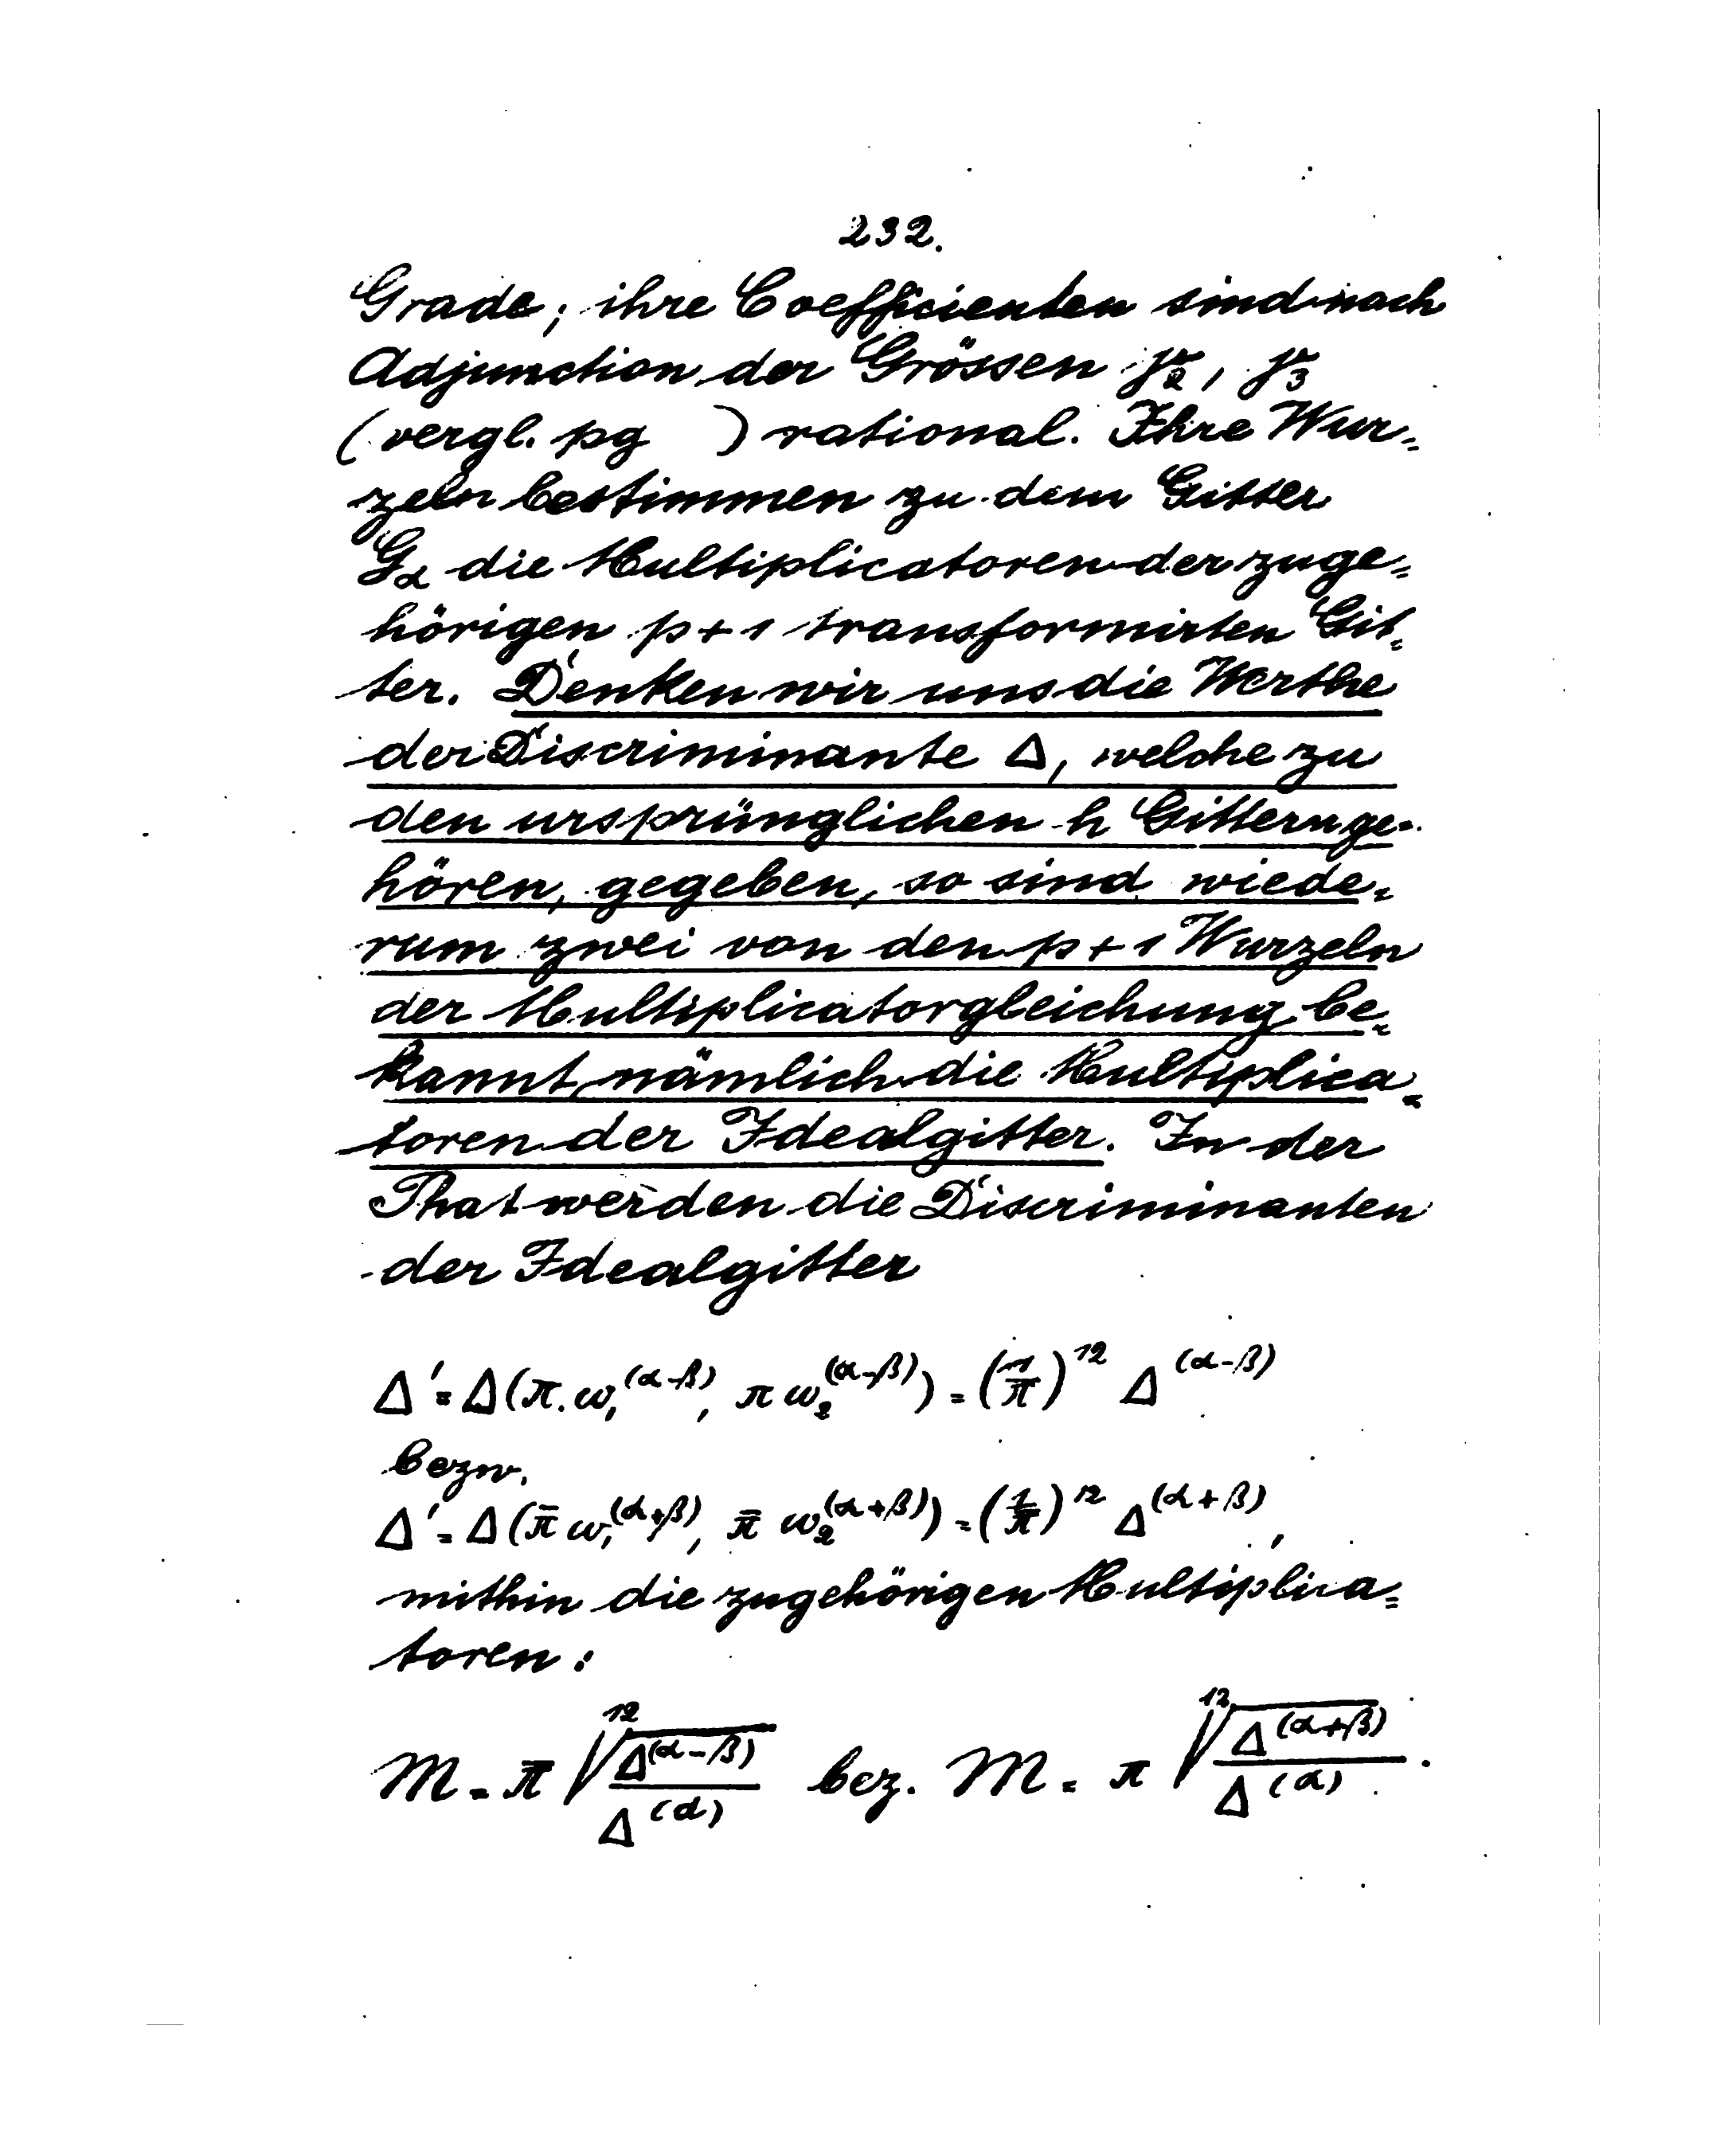 232.
Grade; ihre Coefficienten sind nach
Adjunction der Grössen γ₂, γ₃
(vergl. pg      ) rational. Ihre Wur=
zeln bestimmen zu dem Gitter
G_α die Multiplicatoren der zuge=
hörigen p+1 transformirten Git=
ter. Denken wir uns die Werthe
der Discriminante Δ, welche zu
den ursprünglichen h Gittern ge=
hören, gegeben, so sind wiede=
rum zwei von den p+1 Wurzeln
der Multiplicatorgleichung be=
kannt, nämlich die Multiplica=
toren der Idealgitter. In der
That werden die Discriminanten
der Idealgitter
Δ' = Δ(π.ω₁^(α-β), π ω₂^(α-β)) = (1/π)^12 Δ^(α-β)
bezw.
Δ' = Δ(π̄ ω₁^(α+β), π̄ ω₂^(α+β)) = (1/π̄)^12 Δ^(α+β),
mithin die zugehörigen Multiplica=
toren:
M = π ¹²√(Δ^(α-β)/Δ^(α)) bez. M = π ¹²√(Δ^(α+β)/Δ^(α)).